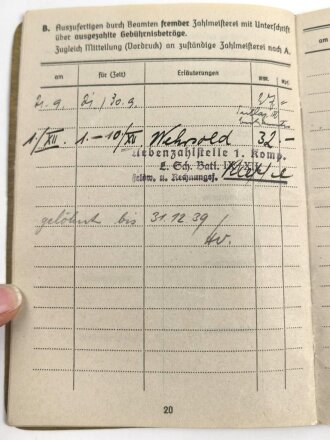 B. Auszufertigen durch Beamten fremder Zahlmeisterei mit Unterschrift
über ausgezahlte Gebührnisbeträge.
Zugleich Mitteilung (Vordruck) an zuständige Zahlmeisterei nach A.
am für (Zeit) Erläuterungen RM. Rpf.
21.9. 21./30.9. 27 -
1./XII. 1.-10/XII Wehrsold 32 -
Nebenzahlstelle 1. Komp.
L. Sch. Batl.
Feldw. u. Rechnungsf.
gelöhnt bis 31.12.39
20